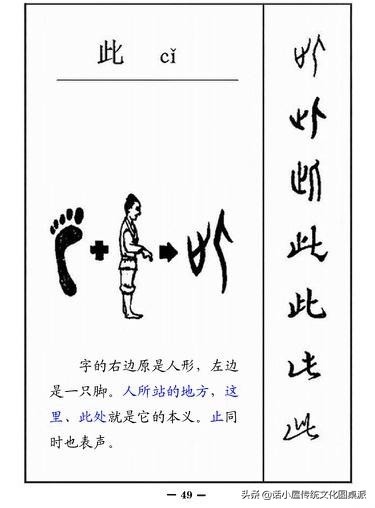 此 cǐ
字的右边原是人形，左边
是一只脚。人所站的地方，这
里、此处就是它的本义。止同
时也表声。
此
此
此
此
此
此
此
— 49 —
头条 @诺小屋传统文化圆桌派